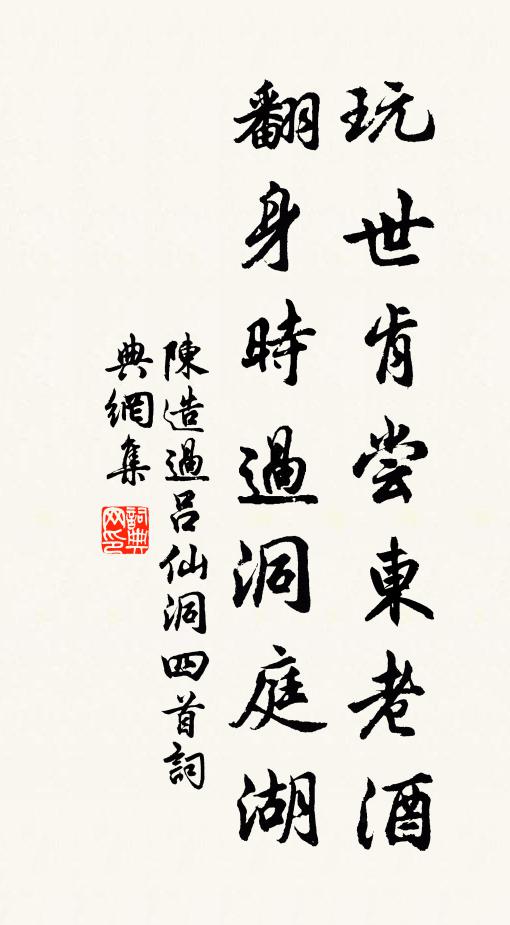 玩世肯尝東老酒
翻身時過洞庭湖
陳造過呂仙洞四首詞
典網集
詞典
网印